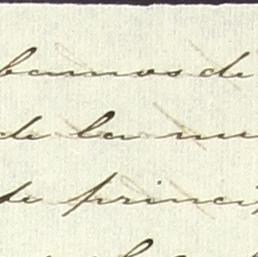 bamos de
de la mu
de princi